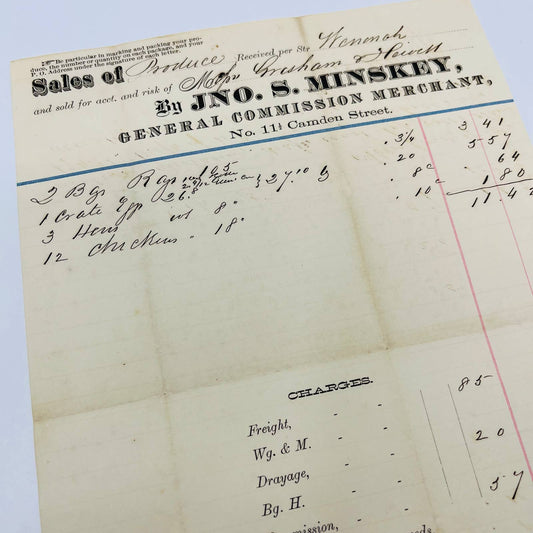 Be particular in marking and packing your pro-
duce, the number or quantity on each package, and your
P. O. Address under the signature of each letter.
Sales of Produce Received per Str Wenonah
and sold for acct. and risk of Gresham & Howell
By JNO. S. MINSKEY,
GENERAL COMMISSION MERCHANT,
No. 11½ Camden Street.
2 Bgs Rags .3/4 3 41
1 Crate Egg 26. 27.10 .20 5 57
3 Hens wt 8" 8c 64
12 Chickens " 18" .10c 1 80
11.42
CHARGES.
Freight, - - 85
Wg. & M. - -
Drayage, - - 20
Bg. H. - -
57